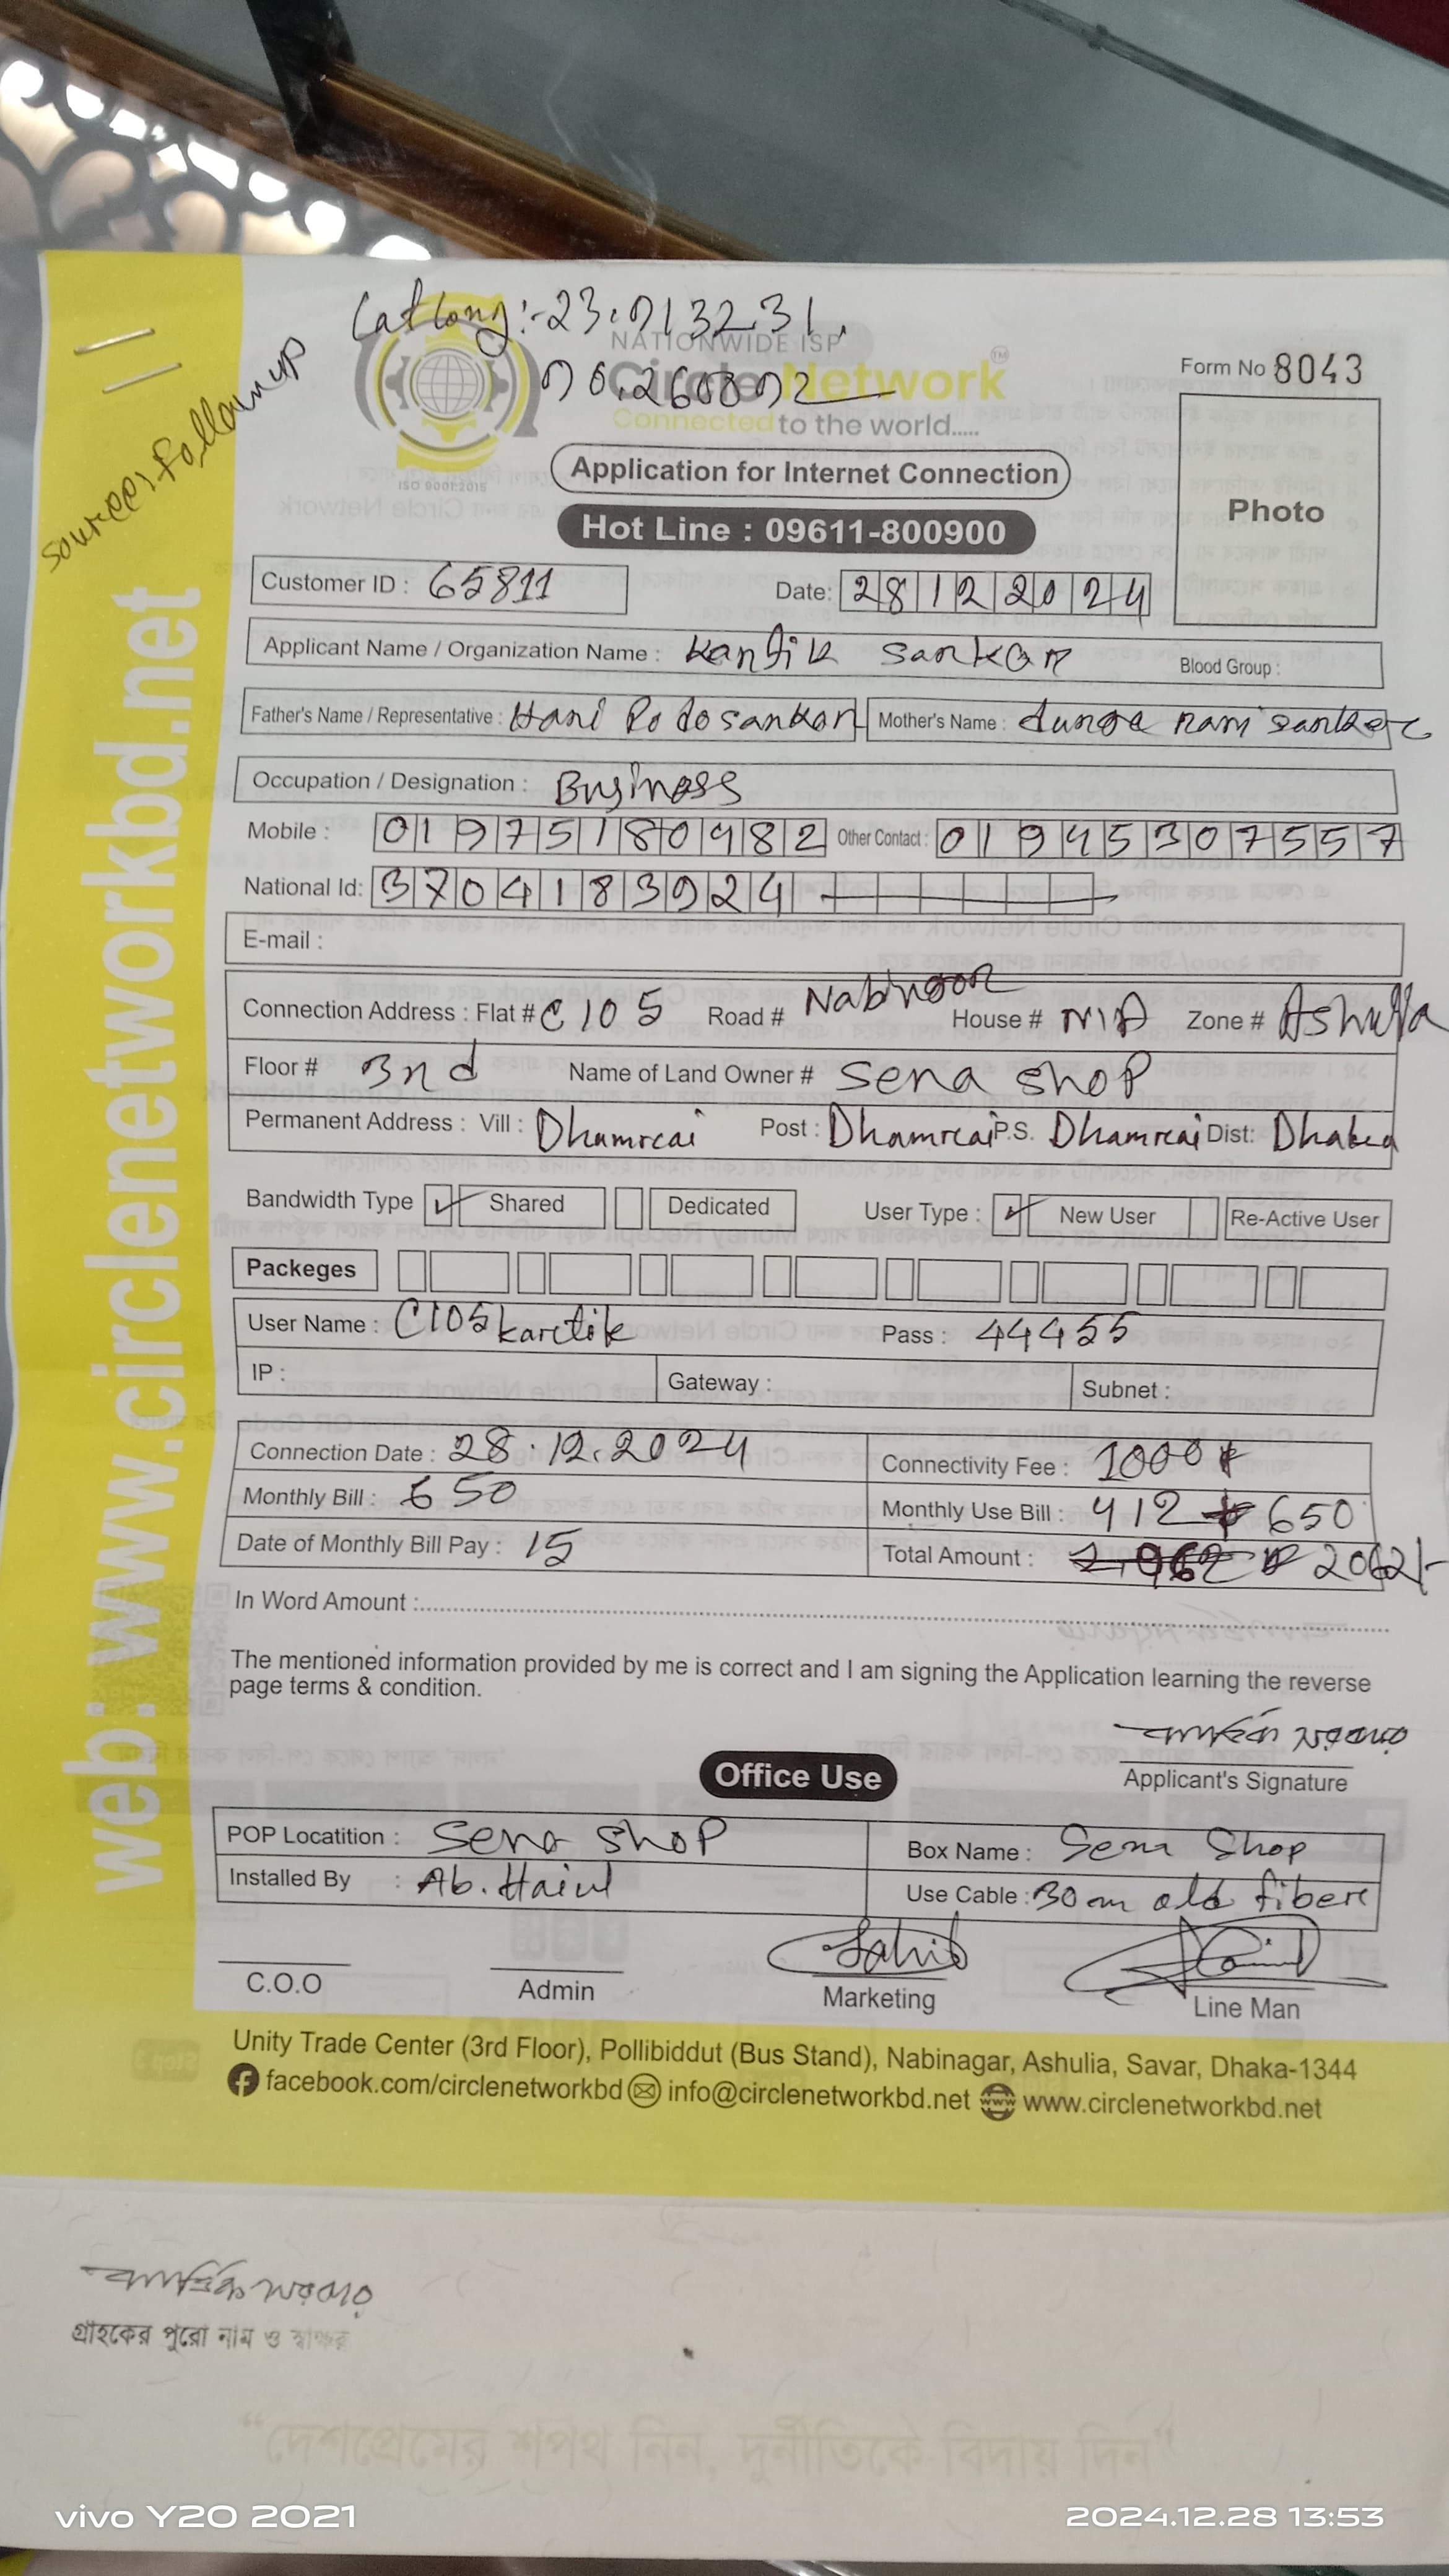 Lat Long:-23.9132231,
90.260892
source: followup
NATIONWIDE ISP
Circle Network
Connected to the world.....
ISO 9001:2015
Form No 8043
Photo
Application for Internet Connection
Hot Line : 09611-800900
Customer ID : 65811 Date: 28122024
Applicant Name / Organization Name : Kartik sarkar Blood Group :
Father's Name / Representative : Hari Podo sarkar Mother's Name : durga rani sarker
Occupation / Designation : Business
Mobile : 01975180982 Other Contact : 01945307557
National Id: 3704183924
E-mail :
Connection Address : Flat # C105 Road # House # N/A Zone # Ashulia
Floor # 3nd Name of Land Owner # Sena shop
Permanent Address : Vill : Dhamrai Post : Dhamrai P.S. Dhamrai Dist: Dhaka
Bandwidth Type Shared Dedicated User Type : New User Re-Active User
Packeges
User Name : C105kartik Pass : 44455
IP : Gateway : Subnet :
Connection Date : 28.12.2024 Connectivity Fee : 1000
Monthly Bill : 650 Monthly Use Bill : 412 + 650
Date of Monthly Bill Pay : 15 Total Amount : 2062/-
In Word Amount :
The mentioned information provided by me is correct and I am signing the Application learning the reverse
page terms & condition.
কার্তিক সরকার
Applicant's Signature
Office Use
POP Locatition : Sena shop Box Name : Sena Shop
Installed By : Ab. Haiul Use Cable : 30m old fiber
C.O.O Admin Marketing Line Man
Unity Trade Center (3rd Floor), Pollibiddut (Bus Stand), Nabinagar, Ashulia, Savar, Dhaka-1344
facebook.com/circlenetworkbd info@circlenetworkbd.net www.circlenetworkbd.net
web: www.circlenetworkbd.net
কার্তিক সরকার
গ্রাহকের পুরো নাম ও স্বাক্ষর
“দেশপ্রেমের শপথ নিন, দুর্নীতিকে বিদায় দিন”
vivo Y20 2021 2024.12.28 13:53